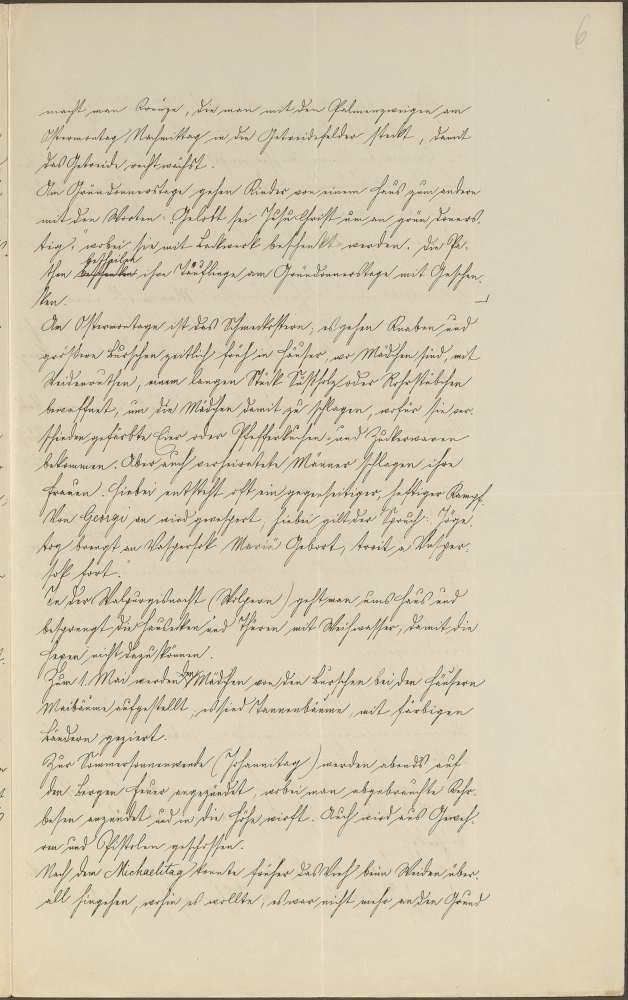 6
macht man Kreuze, die man mit den Palmenzweigen am
Ostermontag Nachmittag in die Getreidefelder steckt, damit
das Getreide recht wächst.
Am Gründonnerstage gehen Kinder von einem Haus zum andern
mit den Worten: "Gelobt sei Jesu Christ um an grün Donners-
tig," wobei sie mit Backwerk beschenkt werden. Die Pa-
then betheilen ihre Täuflinge am Gründonnerstage mit Geschen-
ken.
Am Ostermontage ist das Schmeckostern, es gehen Knaben und
größere Burschen zeitlich früh in Häuser, wo Mädchen sind, mit
Weidenruthen, einem langen Stück Süßholz oder Rohrstäbchen
bewaffnet, um die Mädchen damit zu schlagen, wofür sie ver-
schieden gefärbte Eier oder Pfefferkuchen und Zuckerwaren
bekommen. Aber auch verheiratete Männer schlagen ihre
Frauen. Hiebei entsteht oft ein gegenseitiger, heftiger Kampf.
Von Georgi an wird gevespert, hiebei gilt der Spruch: "Jörge-
tog brengt an Vaspersok Mariä Gebort, troit a Vasper-
sok fort."
In der Walpurgisnacht (Wolpern) geht man ums Haus und
besprengt die Hausecken und Thüren mit Weihwasser, damit die
Hexen nicht dazu können.
Zum 1. Mai werden den Mädchen von den Burschen bei den Häusern
Maibäume aufgestellt, es sind Tannenbäume, mit färbigen
Bändern geziert.
Zur Sommersonnenwende (Johannitag) werden abends auf
den Bergen Feuer angezündet, wobei man abgebrauchte Kehr-
besen anzündet und in die Höhe wirft. Auch wird aus Geweh-
ren und Pistolen geschossen.
Nach dem Michaelitag konnte früher das Vieh beim Weiden über-
all hingehen, wohin es wollte, es war nicht mehr an den Grund